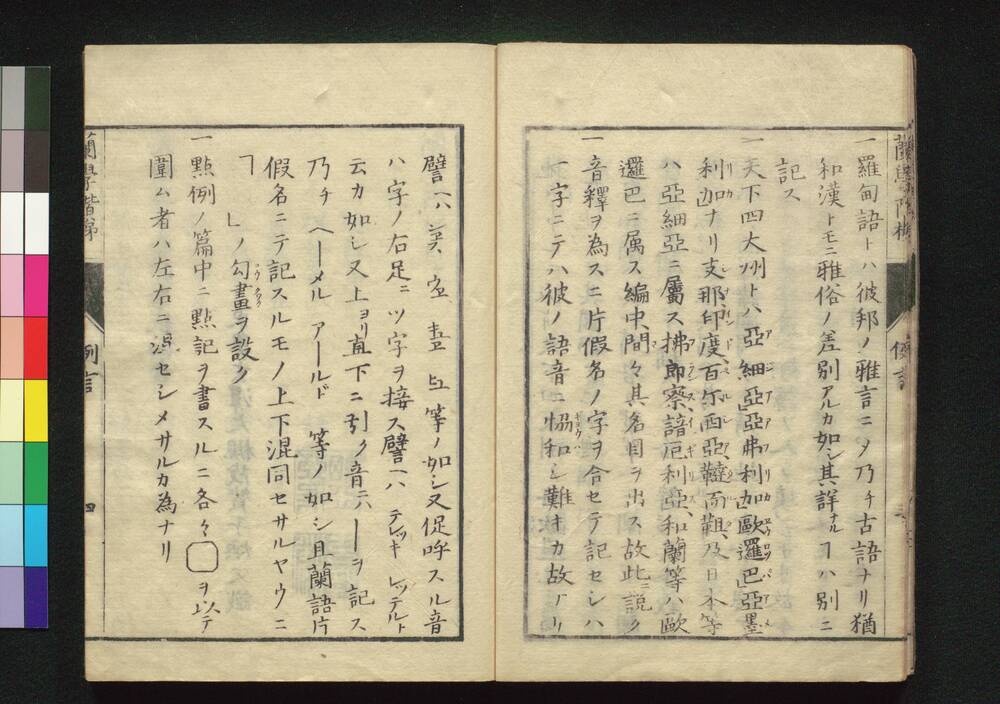 蘭學階梯
例言
三
一羅甸語トハ彼邦ノ雅言ニ〆乃チ古語ナリ猶
和漢トモニ雅俗ノ差別アルカ如シ其詳ナルヿハ別ニ
記ス
一天下四大州トハ亞細亞亞弗利加歐邏巴亞墨
利加ナリ支那印度百尓西亞韃而靼及日本等
ハ亞細亞ニ屬ス拂郎察諳厄利亞和蘭等ハ歐
邏巴ニ属ス編中間々其名目ヲ出ス故此ニ説ク
一音釋ヲ為スニ片假名ノ字ヲ合セテ記セシハ
一字ニテハ彼ノ語音ニ恊和シ難キカ故ナリ
譬ヘハ 等ノ如シ又促呼スル音
ハ字ノ右足ニツ字ヲ接ス譬ヘハ テレッキ レッテルト
云カ如シ又上ヨリ直下ニ引ク音ニハーヲ記ス
乃チ ヘーメル アールド 等ノ如シ且蘭語片
假名ニテ記スルモノ上下混同セサルヤウニ
「 」ノ勾畫ヲ設ク
一點例ノ篇中ニ點記ヲ書スルニ各々 ヲ以テ
圍ム者ハ左右ニ混セシメサルカ為ナリ
蘭學階梯
例言
四